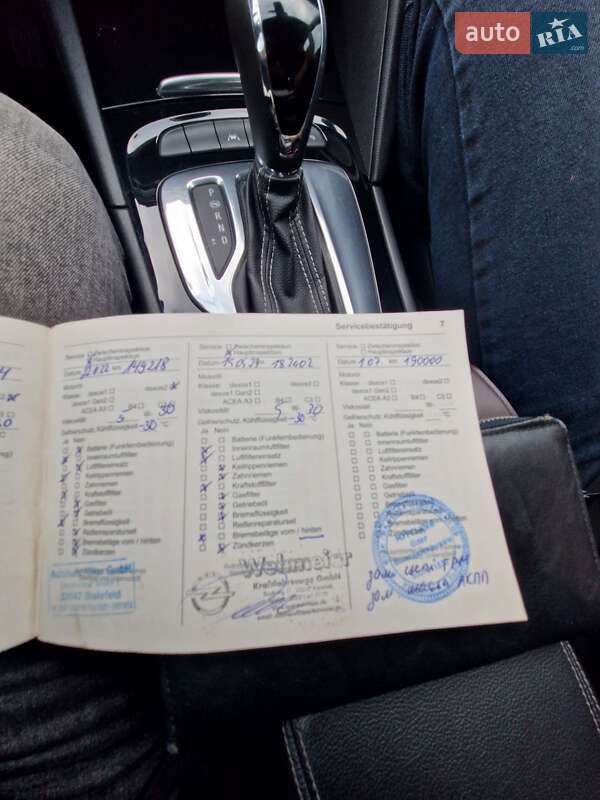 auto RIA.com
P
R
N
D
Servicebestätigung 7
Service Zwischeninspektion
Hauptinspektion
Datum 22 km 149218
Motoröl
Klasse: dexos1 dexos2
dexos1 Gen2
ACEA A3 B4 C3
Viskosität: 5 W- 30
Gefrierschutz, Kühlflüssigkeit -30 °C
Ja Nein
Batterie (Funkfernbedienung)
Innenraumluftfilter
Luftfiltereinsatz
Keilrippenriemen
Zahnriemen
Kraftstofffilter
Gasfilter
Getriebeöl
Bremsflüssigkeit
Reifenreparaturset
Bremsbeläge vorn / hinten
Zündkerzen
GmbH
Bielefeld
Service Zwischeninspektion
Hauptinspektion
Datum km 182002
Motoröl
Klasse: dexos1 dexos2
dexos1 Gen2
ACEA A3 B4 C3
Viskosität: 5 W- 30
Gefrierschutz, Kühlflüssigkeit -30 °C
Ja Nein
Batterie (Funkfernbedienung)
Innenraumluftfilter
Luftfiltereinsatz
Keilrippenriemen
Zahnriemen
Kraftstofffilter
Gasfilter
Getriebeöl
Bremsflüssigkeit
Reifenreparaturset
Bremsbeläge vorn / hinten
Zündkerzen
Welmeier
Kraftfahrzeuge GmbH
Service Zwischeninspektion
Hauptinspektion
Datum 1.07 km 190000
Motoröl
Klasse: dexos1 dexos2
dexos1 Gen2
ACEA A3 B4 C3
Viskosität: W-
Gefrierschutz, Kühlflüssigkeit °C
Ja Nein
Batterie (Funkfernbedienung)
Innenraumluftfilter
Luftfiltereinsatz
Keilrippenriemen
Zahnriemen
Kraftstofffilter
Gasfilter
Getriebeöl
АКПП